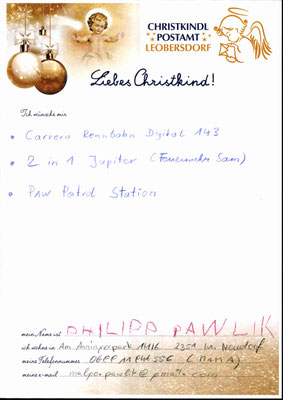 CHRISTKINDL
POSTAMT
LEOBERSDORF
Liebes Christkind!
Ich wünsche mir
• Carrera Rennbahn Digital 143
• 2 in 1 Jupiter (Feuerwehr Sam)
• PAW Patrol Station
mein Name ist PHILIPP PAWLIK
ich wohne in Am 2351 Wr. Neudorf
meine Telefonnummer (MAMA)
meine e-mail